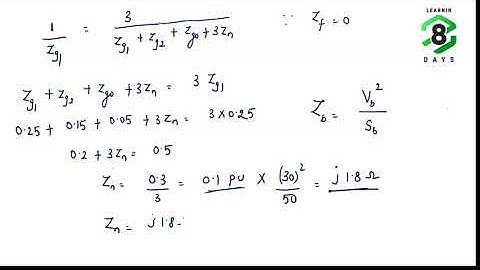 1/Zg1 = 3/(Zg1 + Zg2 + Zg0 + 3Zn) ∵ Zf = 0
LEARNIN
8
DAYS
Zg1 + Zg2 + Zg0 + 3Zn = 3 Zg1
Zb = Vb²/Sb
0.25 + 0.15 + 0.05 + 3Zn = 3 × 0.25
0.2 + 3Zn = 0.5
Zn = 0.3/3 = 0.1 pu × (30)²/50 = j 1.8 Ω
Zn = j 1.8